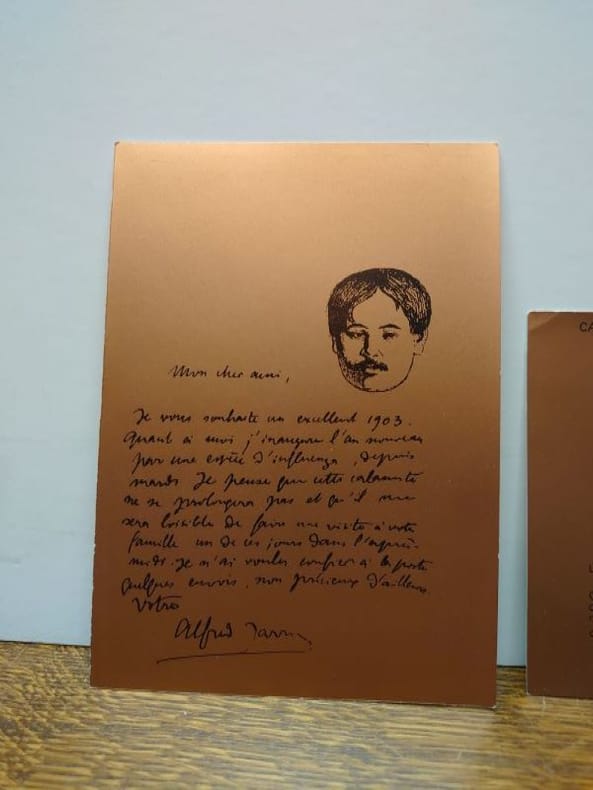 Mon cher ami,
Je vous souhaite un excellent 1903.
Quant à moi, j'inaugure l'an nouveau
par une espèce d'influenza, depuis
mardi. Je pense que cette calamité
ne se prolongera pas et qu'il me
sera loisible de faire une visite à votre
famille un de ces jours dans l'après-
midi. Je n'ai voulu confier à la poste
quelques envois, non précieux d'ailleurs.
Votre
Alfred Jarry
CA